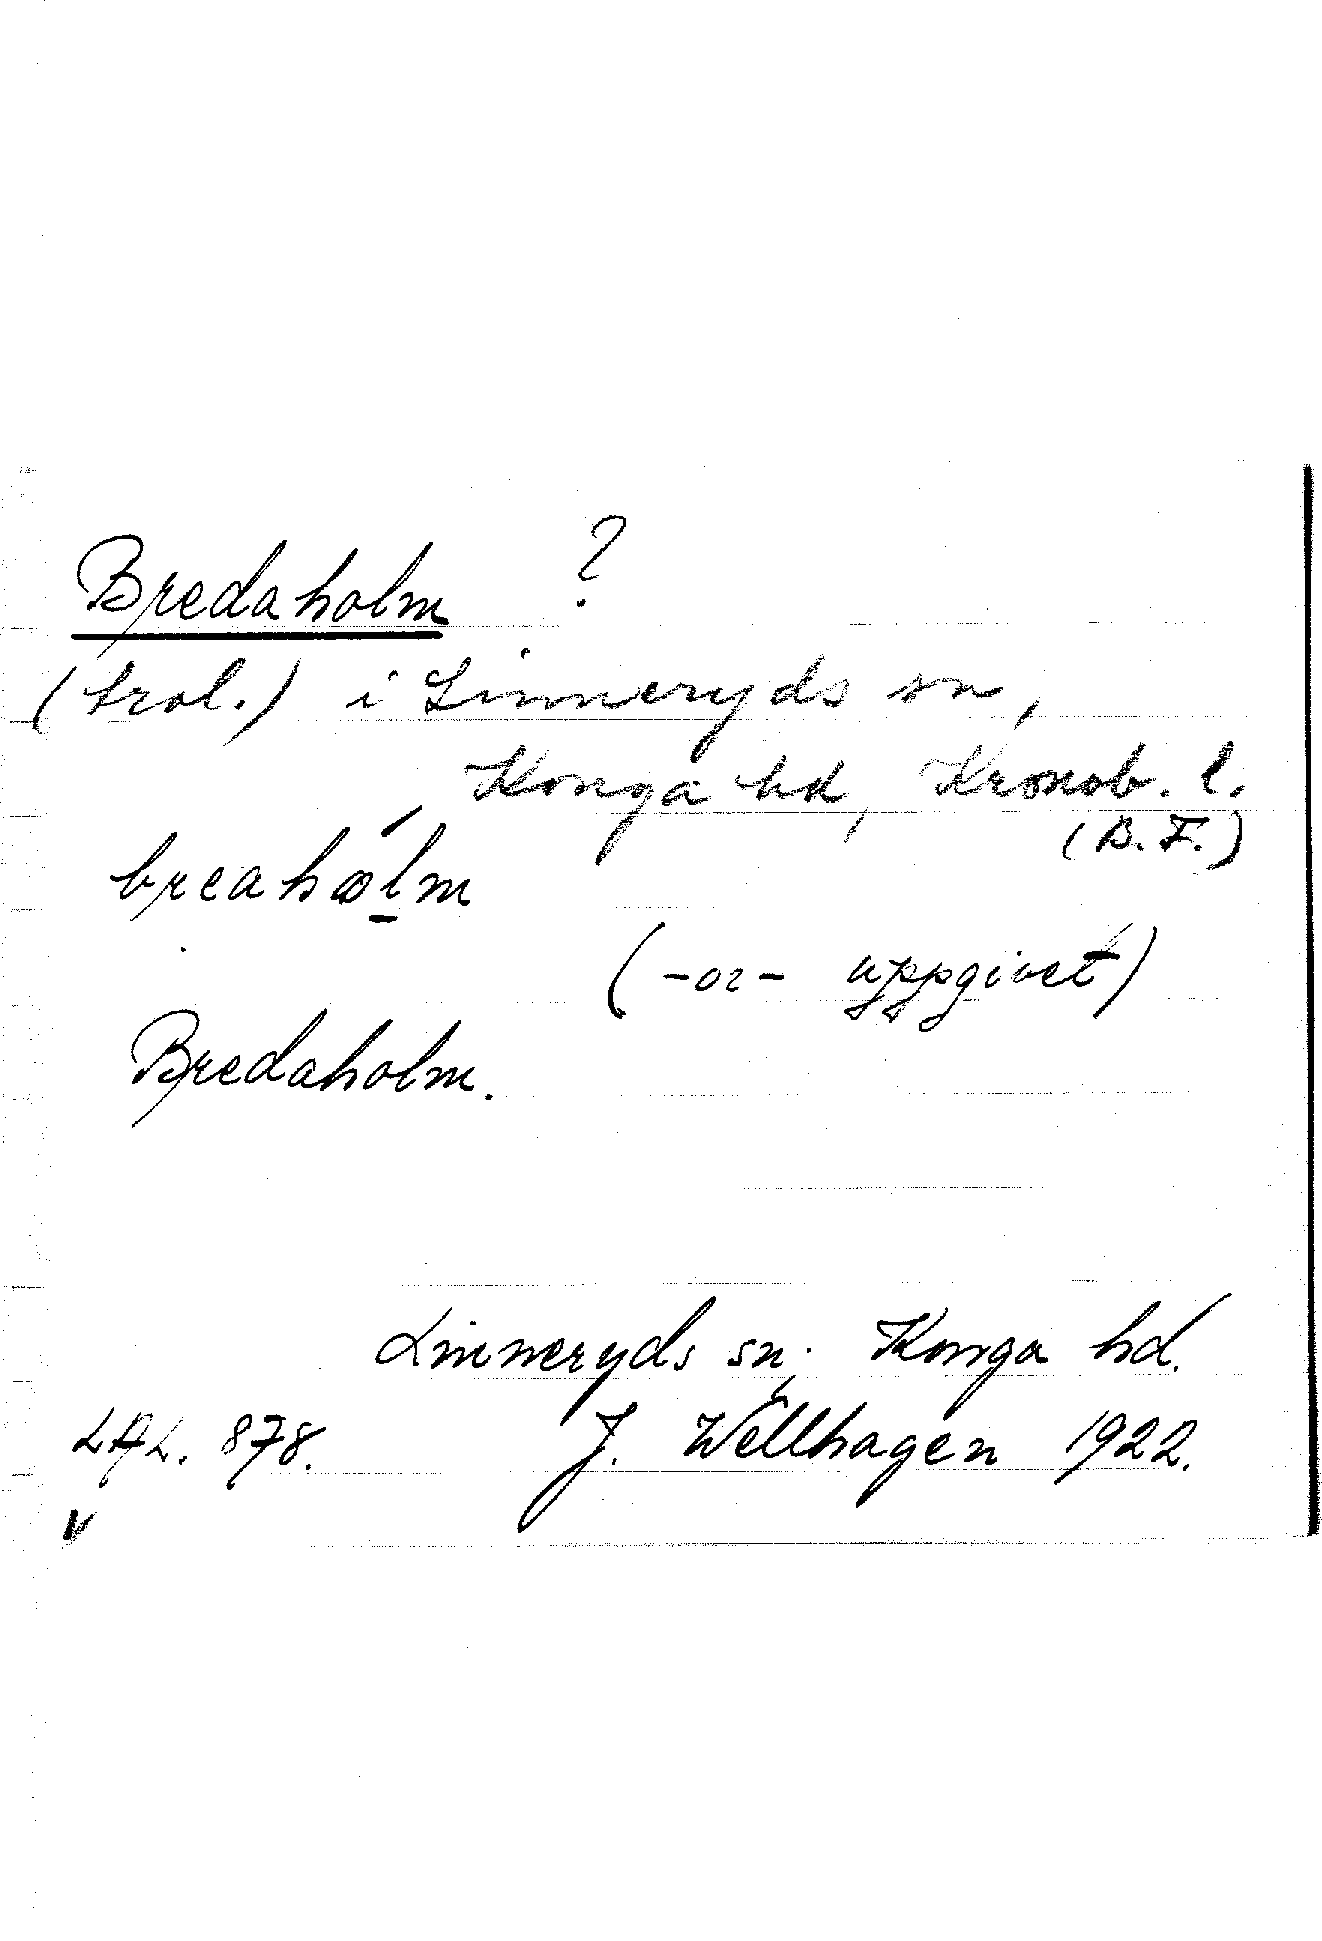 Bredaholm ?
(trol.) i Linneryds sn,
Konga hd, Kronob. l.
(B. F.)
breahólm
(-or- uppgivet)
Bredaholm.
Linneryds sn. Konga hd.
LAL. 878. J. Wellhagen 1922.